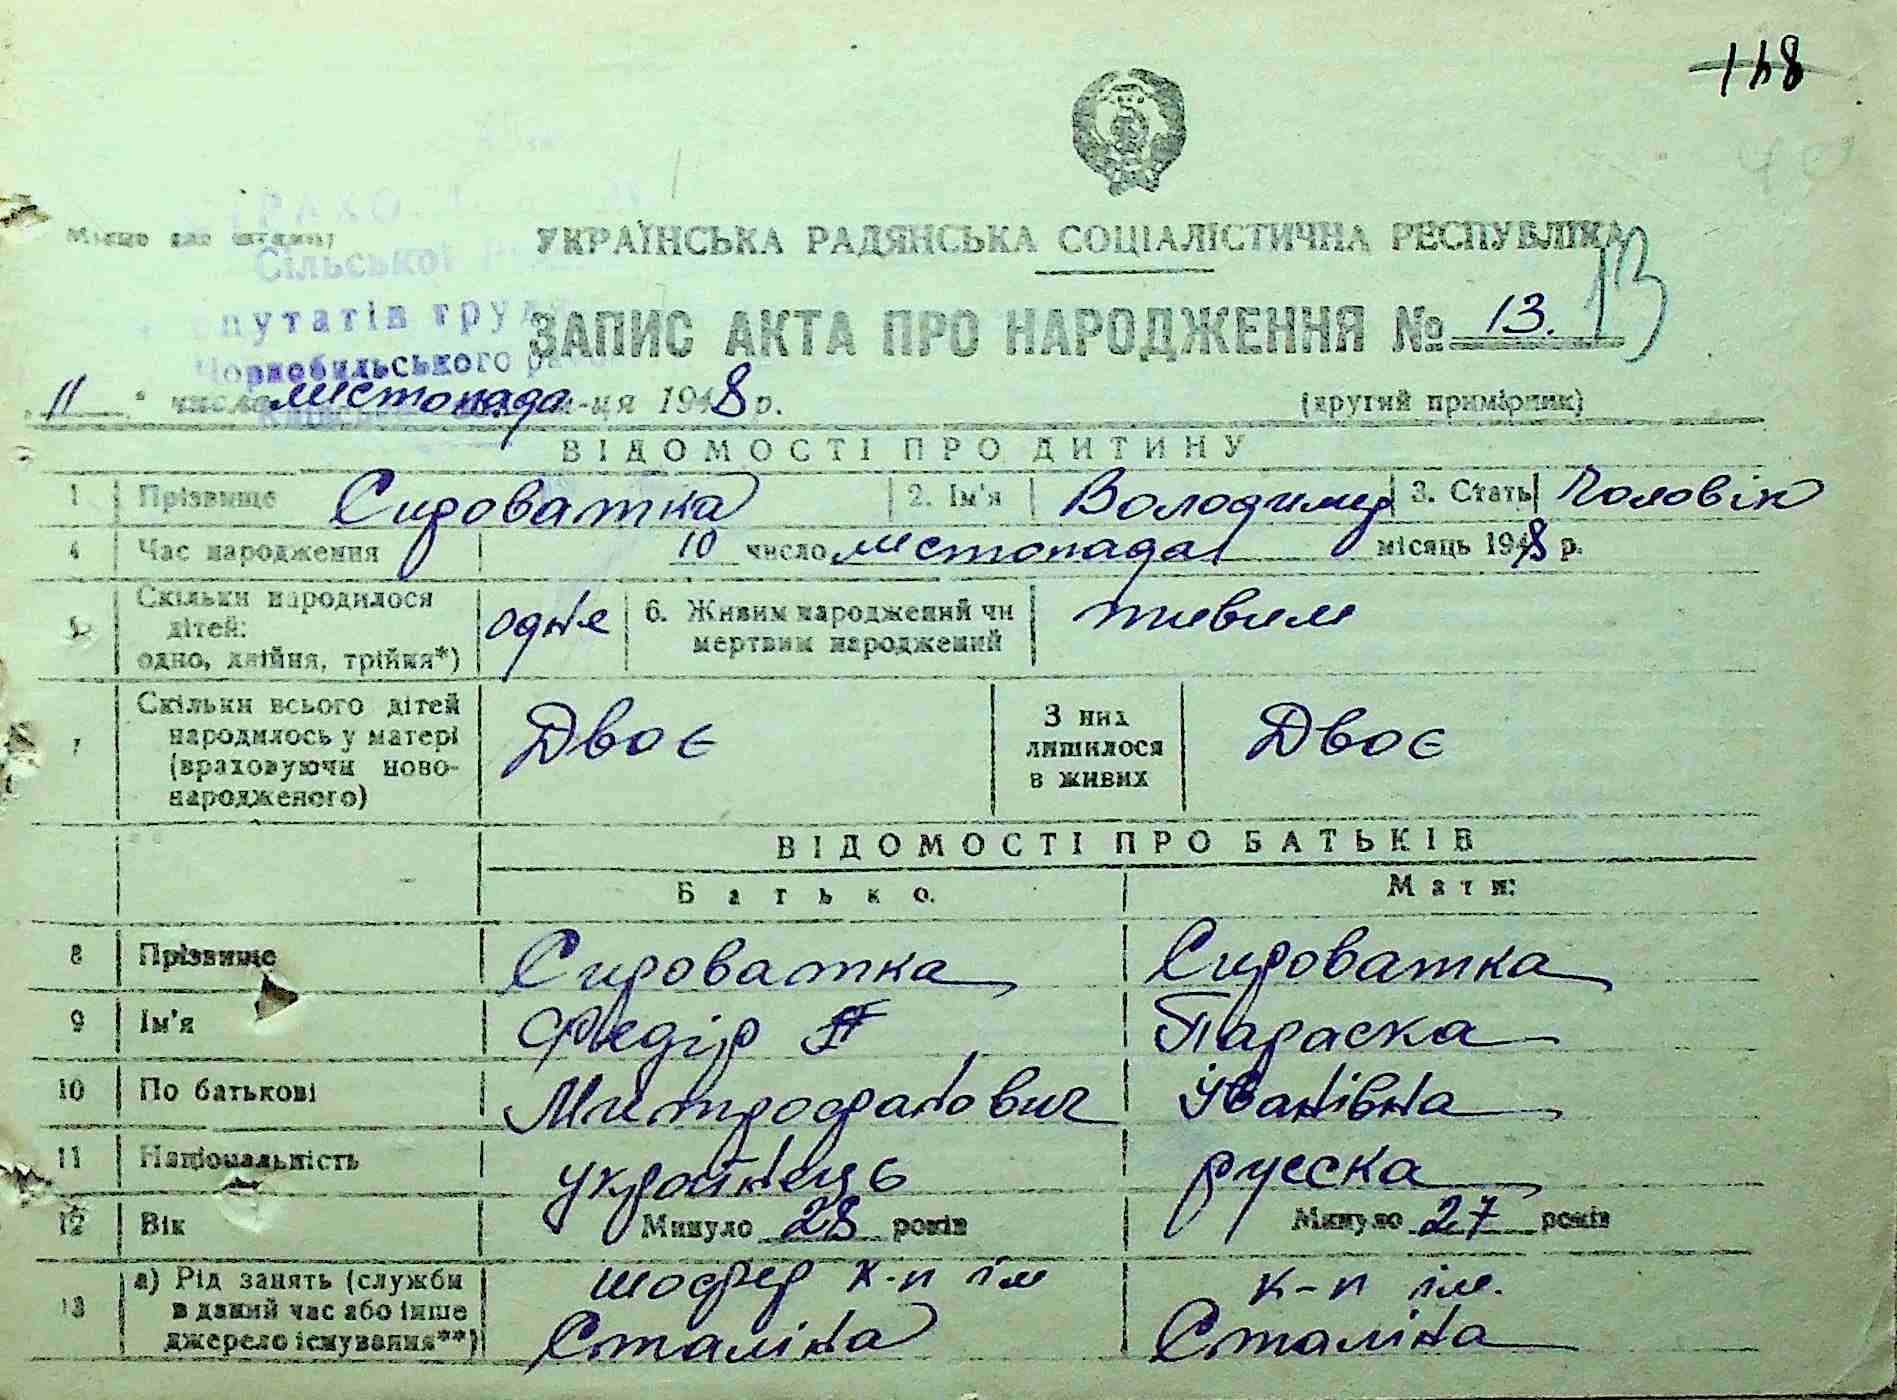 148
Місце для штампу
Сільської
путатів труд
Чорнобильського
УКРАЇНСЬКА РАДЯНСЬКА СОЦІАЛІСТИЧНА РЕСПУБЛІКА
ЗАПИС АКТА ПРО НАРОДЖЕННЯ № 13. 13
"11" число листопада м-ця 1948 р. (другий примірник)
ВІДОМОСТІ ПРО ДИТИНУ
1 Прізвище Сироватка 2. Ім'я Володимир 3. Стать Чоловік
4 Час народження 10 число листопада місяць 1948 р.
5 Скільки народилося дітей: одно, двійня, трійня*) одне 6. Живим народжений чи мертвим народжений живим
7 Скільки всього дітей народилось у матері (враховуючи новонародженого) Двоє З них лишилося в живих Двоє
ВІДОМОСТІ ПРО БАТЬКІВ
Батько. Мати:
8 Прізвище Сироватка Сироватка
9 Ім'я Федір Параска
10 По батькові Митрофанович Іванівна
11 Національність українець русска
12 Вік Минуло 28 років Минуло 27 років
13 а) Рід занять (служби в даний час або інше джерело існування**) шофер к-п ім Сталіна к-п ім. Сталіна